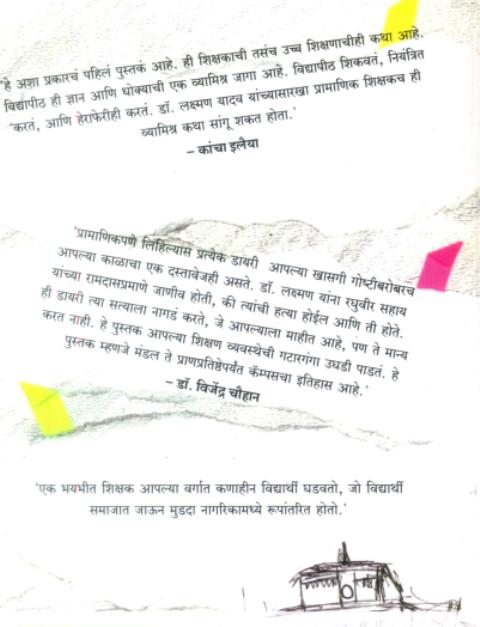 'हे अशा प्रकारचं पहिलं पुस्तक आहे. ही शिक्षकाची तसंच उच्च शिक्षणाचीही कथा आहे.
विद्यापीठ ही ज्ञान आणि धोक्याची एक व्यामिश्र जागा आहे. विद्यापीठ शिकवतं, नियंत्रित
करतं, आणि हेराफेरीही करतं. डॉ. लक्ष्मण यादव यांच्यासारखा प्रामाणिक शिक्षकच ही
व्यामिश्र कथा सांगू शकत होता.'
– कांचा इलैया
'प्रामाणिकपणे लिहिल्यास प्रत्येक डायरी आपल्या खासगी गोष्टींबरोबरच
आपल्या काळाचा एक दस्तावेजही असते. डॉ. लक्ष्मण यांना रघुवीर सहाय
यांच्या रामदासप्रमाणे जाणीव होती, की त्यांची हत्या होईल आणि ती होते.
ही डायरी त्या सत्याला नागडं करते, जे आपल्याला माहीत आहे, पण ते मान्य
करत नाही. हे पुस्तक आपल्या शिक्षण व्यवस्थेची गटारगंगा उघडी पाडतं. हे
पुस्तक म्हणजे मंडल ते प्राणप्रतिष्ठेपर्यंत कॅम्पसचा इतिहास आहे.'
– डॉ. विजेंद्र चौहान
'एक भयभीत शिक्षक आपल्या वर्गात कणाहीन विद्यार्थी घडवतो, जो विद्यार्थी
समाजात जाऊन मुडदा नागरिकामध्ये रूपांतरित होतो.'